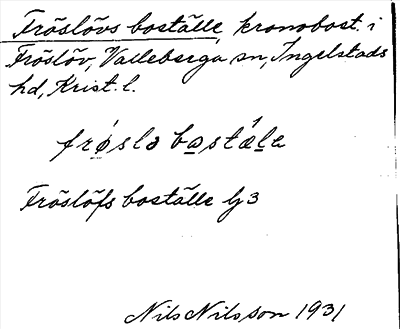 Fröslövs boställe, kronobost. i
Fröslöv, Valleberga sn, Ingelstads
hd, Krist. l.
frǿslə bo̲stǽl̲e
Fröslöfs boställe lj 3
Nils Nilsson 1931